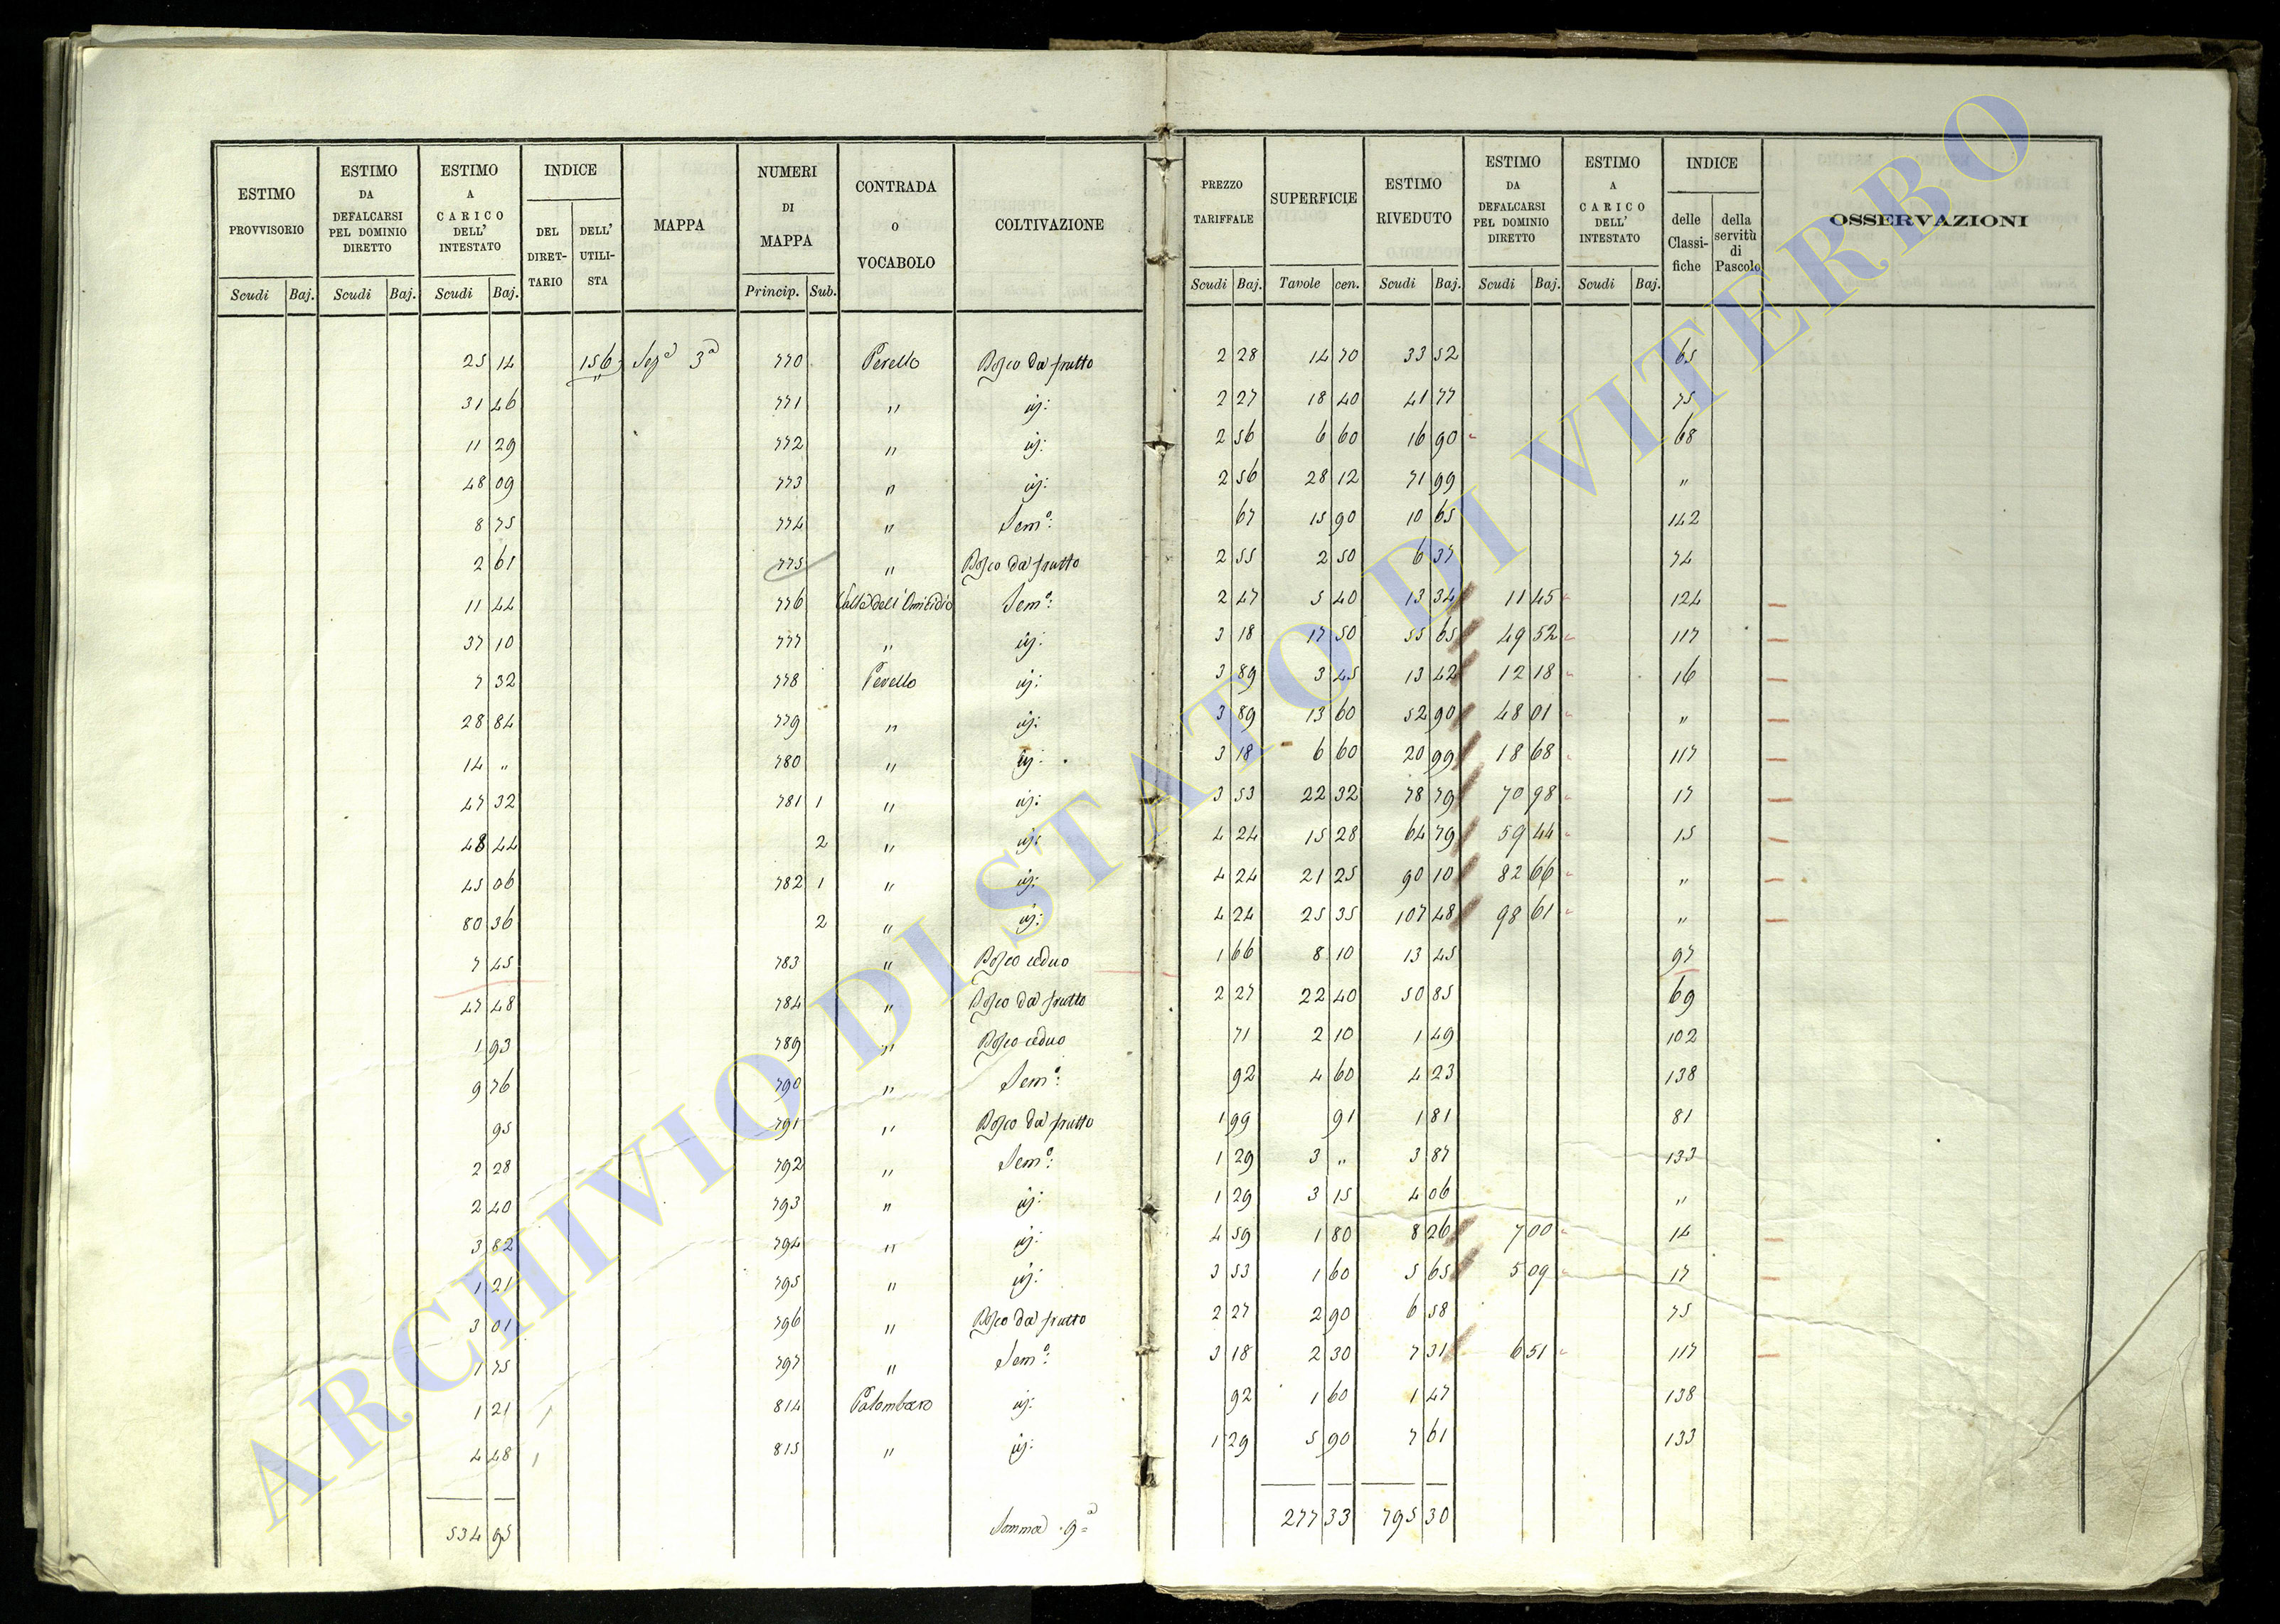 ESTIMO PROVVISORIO | ESTIMO DA DEFALCARSI PEL DOMINIO DIRETTO | ESTIMO A CARICO DELL' INTESTATO | INDICE | MAPPA | NUMERI DI MAPPA | CONTRADA o VOCABOLO | COLTIVAZIONE | PREZZO TARIFFALE | SUPERFICIE | ESTIMO RIVEDUTO | ESTIMO DA DEFALCARSI PEL DOMINIO DIRETTO | ESTIMO A CARICO DELL' INTESTATO | INDICE | OSSERVAZIONI
DEL DIRET-TARIO | DELL' UTILI-STA | delle Classi-fiche | della servitù di Pascolo
Scudi | Baj. | Scudi | Baj. | Scudi | Baj. | Princip. | Sub. | Scudi | Baj. | Tavole | cen. | Scudi | Baj. | Scudi | Baj. | Scudi | Baj.
25 14 | 156 | Sez.a 3a | 770 | Perello | Bosco da frutto | 2 28 | 14 70 | 33 52 | 65
31 46 | 771 | " | id: | 2 27 | 18 40 | 41 77 | 75
11 29 | 772 | " | id: | 2 56 | 6 60 | 16 90 | 68
48 09 | 773 | " | id: | 2 56 | 28 12 | 71 99 | "
8 75 | 774 | " | Sem.o: | 67 | 15 90 | 10 65 | 142
2 61 | 775 | " | Bosco da frutto | 2 55 | 2 50 | 6 37 | 74
11 44 | 776 | dell'Omicidio | Sem.o: | 2 47 | 5 40 | 13 34 | 11 45 | 124
37 10 | 777 | " | id: | 3 18 | 17 50 | 55 65 | 49 52 | 117
7 32 | 778 | Perello | id: | 3 89 | 3 45 | 13 42 | 12 18 | 16
28 84 | 779 | " | id: | 3 89 | 13 60 | 52 90 | 48 01 | "
14 " | 780 | " | id: | 3 18 | 6 60 | 20 99 | 18 68 | 117
47 32 | 781 1 | " | id: | 3 53 | 22 32 | 78 79 | 70 98 | 17
48 44 | 2 | " | id: | 4 24 | 15 28 | 64 79 | 59 44 | 15
45 06 | 782 1 | " | id: | 4 24 | 21 25 | 90 10 | 82 66 | "
80 36 | 2 | " | id: | 4 24 | 25 35 | 107 48 | 98 61 | "
7 45 | 783 | " | Bosco ceduo | 1 66 | 8 10 | 13 45 | 97
47 48 | 784 | " | Bosco da frutto | 2 27 | 22 40 | 50 85 | 69
1 93 | 789 | " | Bosco ceduo | 71 | 2 10 | 1 49 | 102
9 76 | 790 | " | Sem.o: | 92 | 4 60 | 4 23 | 138
95 | 791 | " | Bosco da frutto | 1 99 | 91 | 1 81 | 81
2 28 | 792 | " | Sem.o: | 1 29 | 3 " | 3 87 | 133
2 40 | 793 | " | id: | 1 29 | 3 15 | 4 06 | "
3 82 | 794 | " | id: | 4 59 | 1 80 | 8 26 | 7 00 | 14
1 21 | 795 | " | id: | 3 53 | 1 60 | 5 65 | 5 09 | 17
3 01 | 796 | " | Bosco da frutto | 2 27 | 2 90 | 6 58 | 75
1 75 | 797 | " | Sem.o: | 3 18 | 2 30 | 7 31 | 6 51 | 117
1 21 | 814 | Palombaro | id: | 92 | 1 60 | 1 47 | 138
4 48 | 815 | " | id: | 1 29 | 5 90 | 7 61 | 133
534 95 | Somma 9a | 277 33 | 795 30
ARCHIVIO DI STATO DI VITERBO